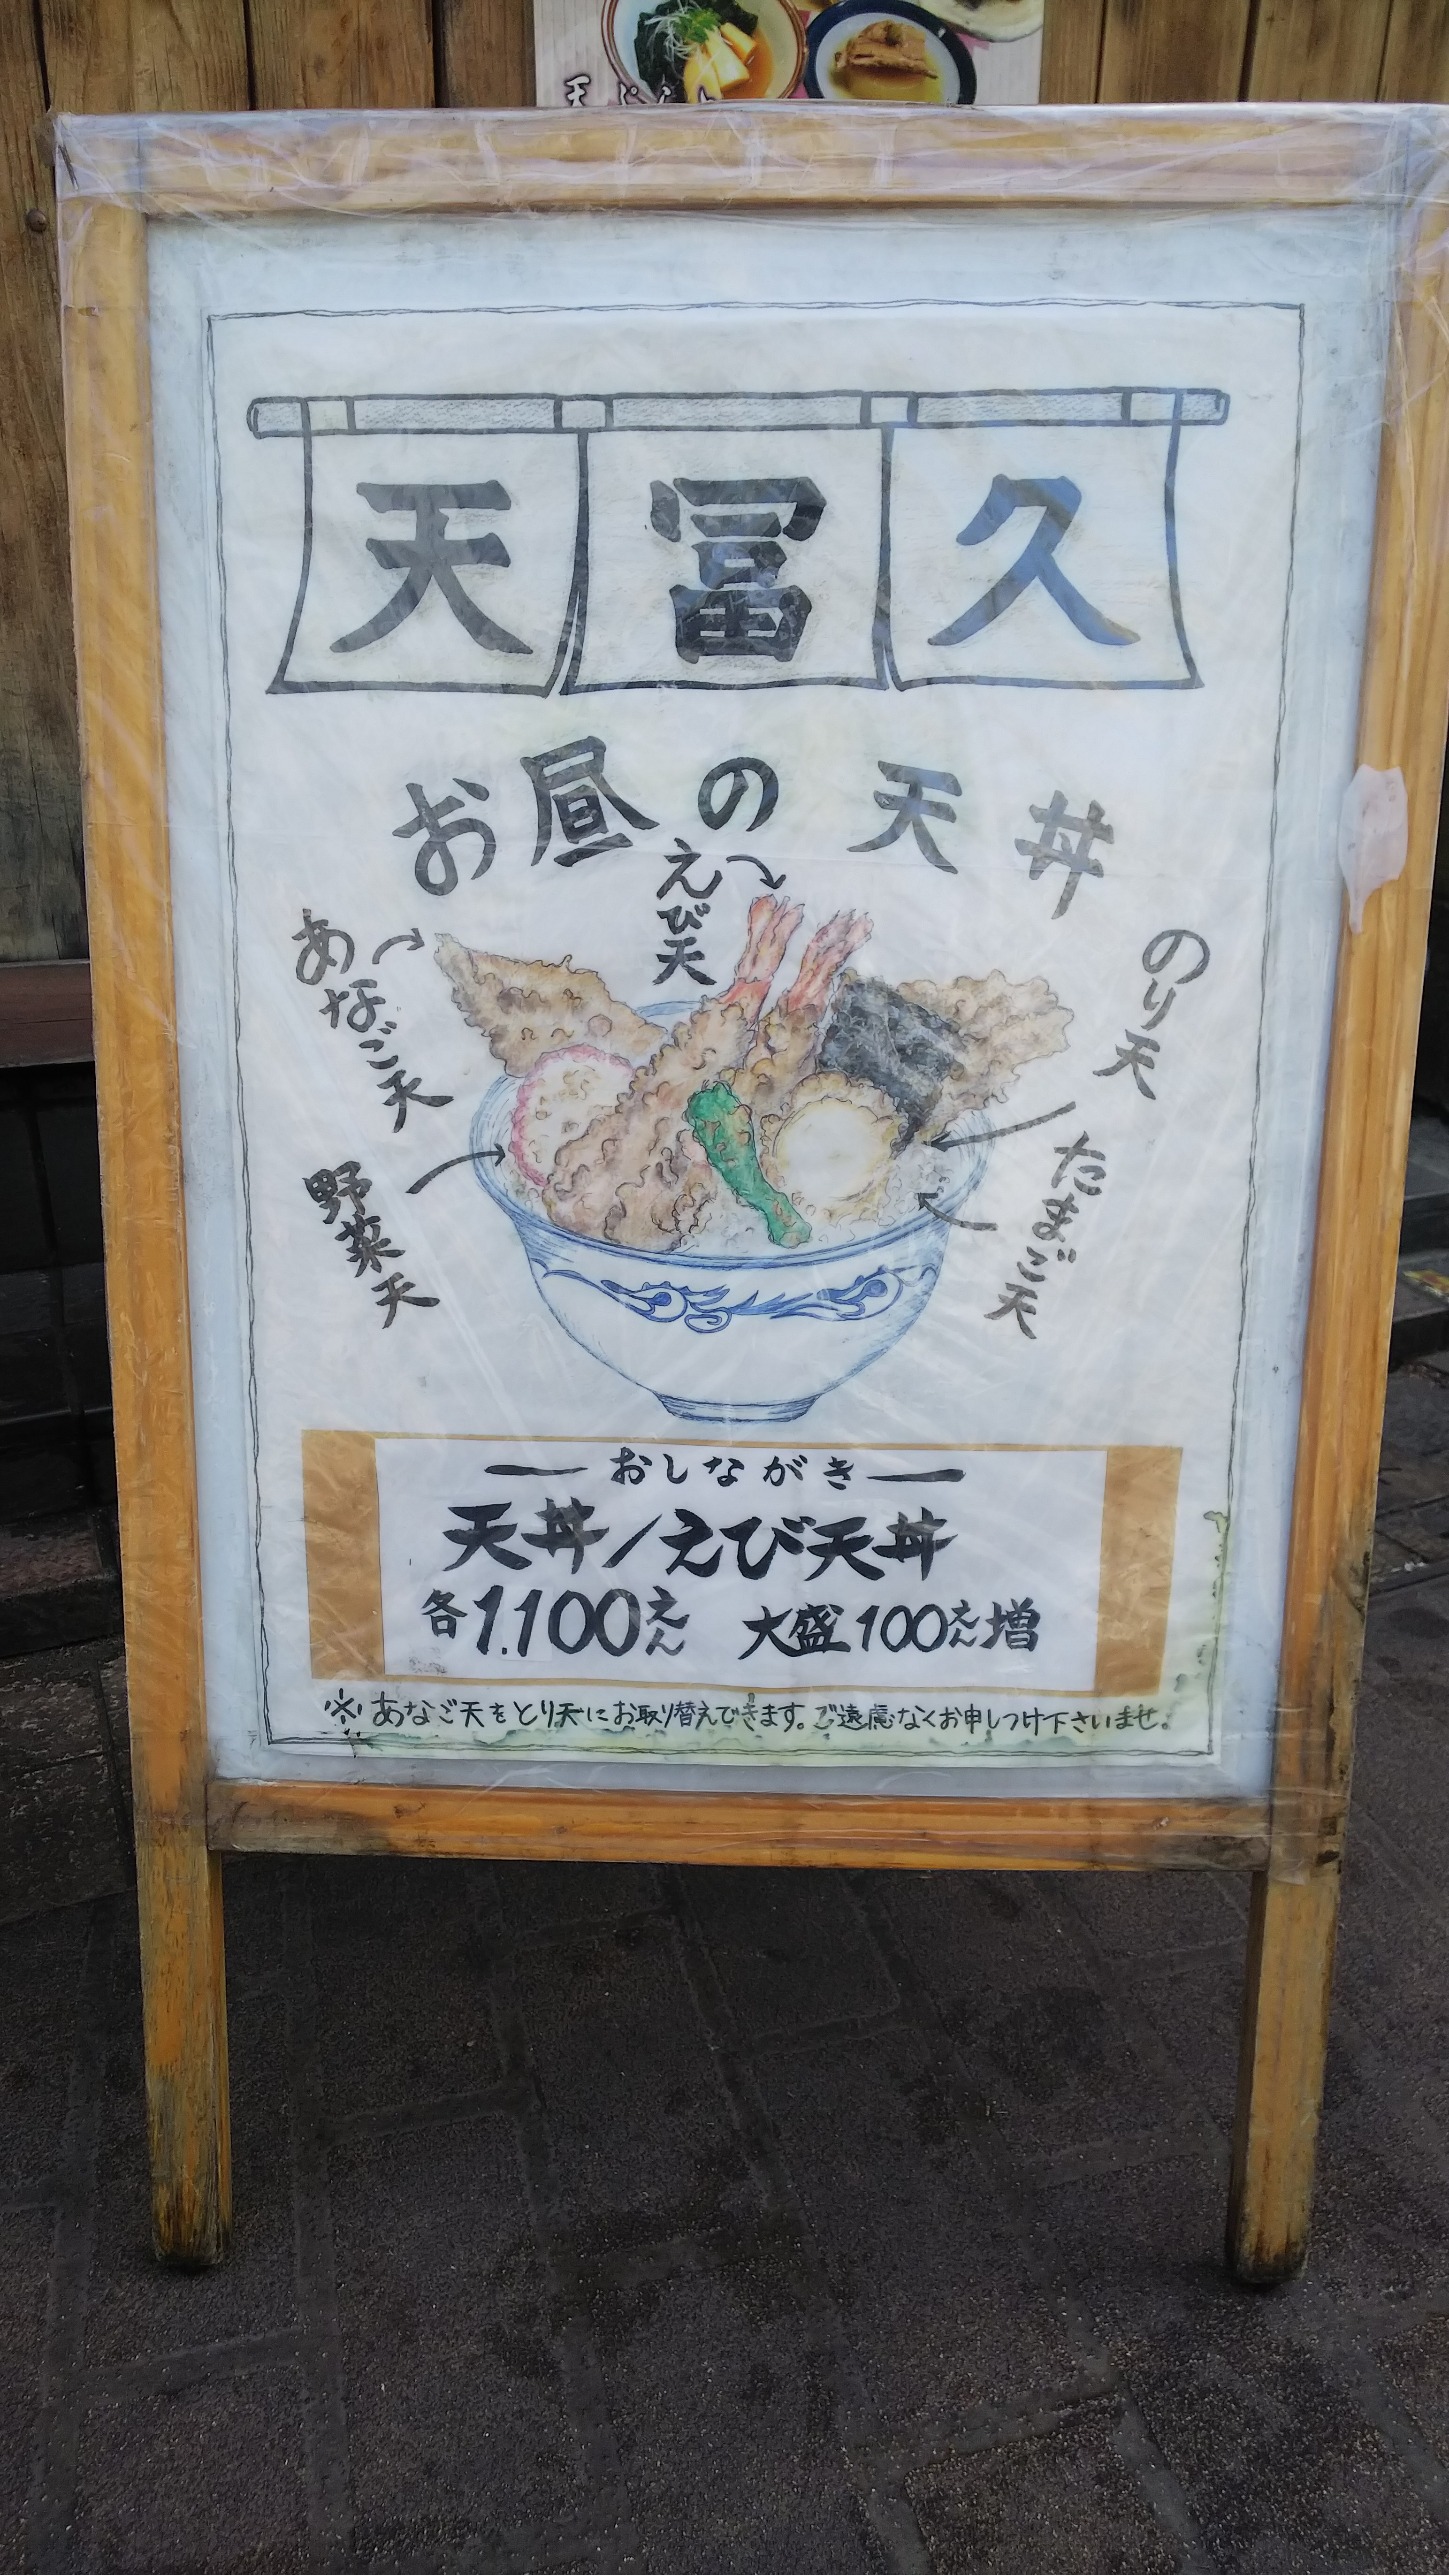 天冨久
お昼の天丼
えび天
あなご天
のり天
野菜天
たまご天
おしながき
天丼/えび天丼
各1.100えん 大盛100えん増
※あなご天をとり天にお取り替えできます。ご遠慮なくお申しつけ下さいませ。